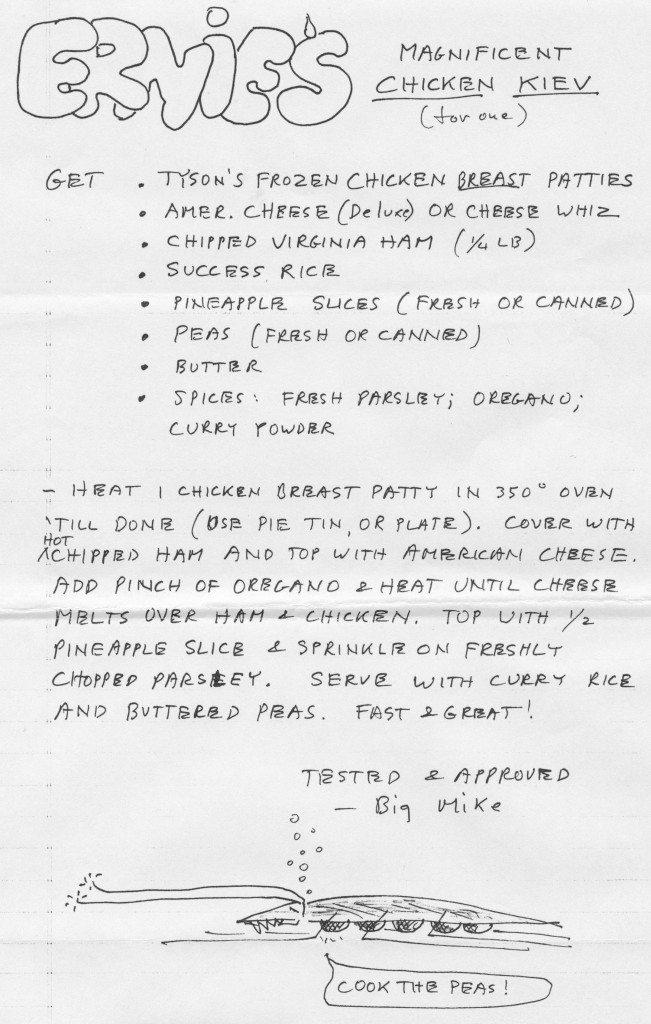 ERNIE'S
MAGNIFICENT
CHICKEN KIEV
(for one)
GET • TYSON'S FROZEN CHICKEN BREAST PATTIES
• AMER. CHEESE (Deluxe) OR CHEESE WHIZ
• CHIPPED VIRGINIA HAM (1/4 LB)
• SUCCESS RICE
• PINEAPPLE SLICES (FRESH OR CANNED)
• PEAS (FRESH OR CANNED)
• BUTTER
• SPICES: FRESH PARSLEY; OREGANO;
CURRY POWDER
– HEAT 1 CHICKEN BREAST PATTY IN 350° OVEN
'TILL DONE (USE PIE TIN, OR PLATE). COVER WITH
HOT
^CHIPPED HAM AND TOP WITH AMERICAN CHEESE.
ADD PINCH OF OREGANO & HEAT UNTIL CHEESE
MELTS OVER HAM & CHICKEN. TOP WITH 1/2
PINEAPPLE SLICE & SPRINKLE ON FRESHLY
CHOPPED PARSLEY. SERVE WITH CURRY RICE
AND BUTTERED PEAS. FAST & GREAT!
TESTED & APPROVED
– Big Mike
COOK THE PEAS!